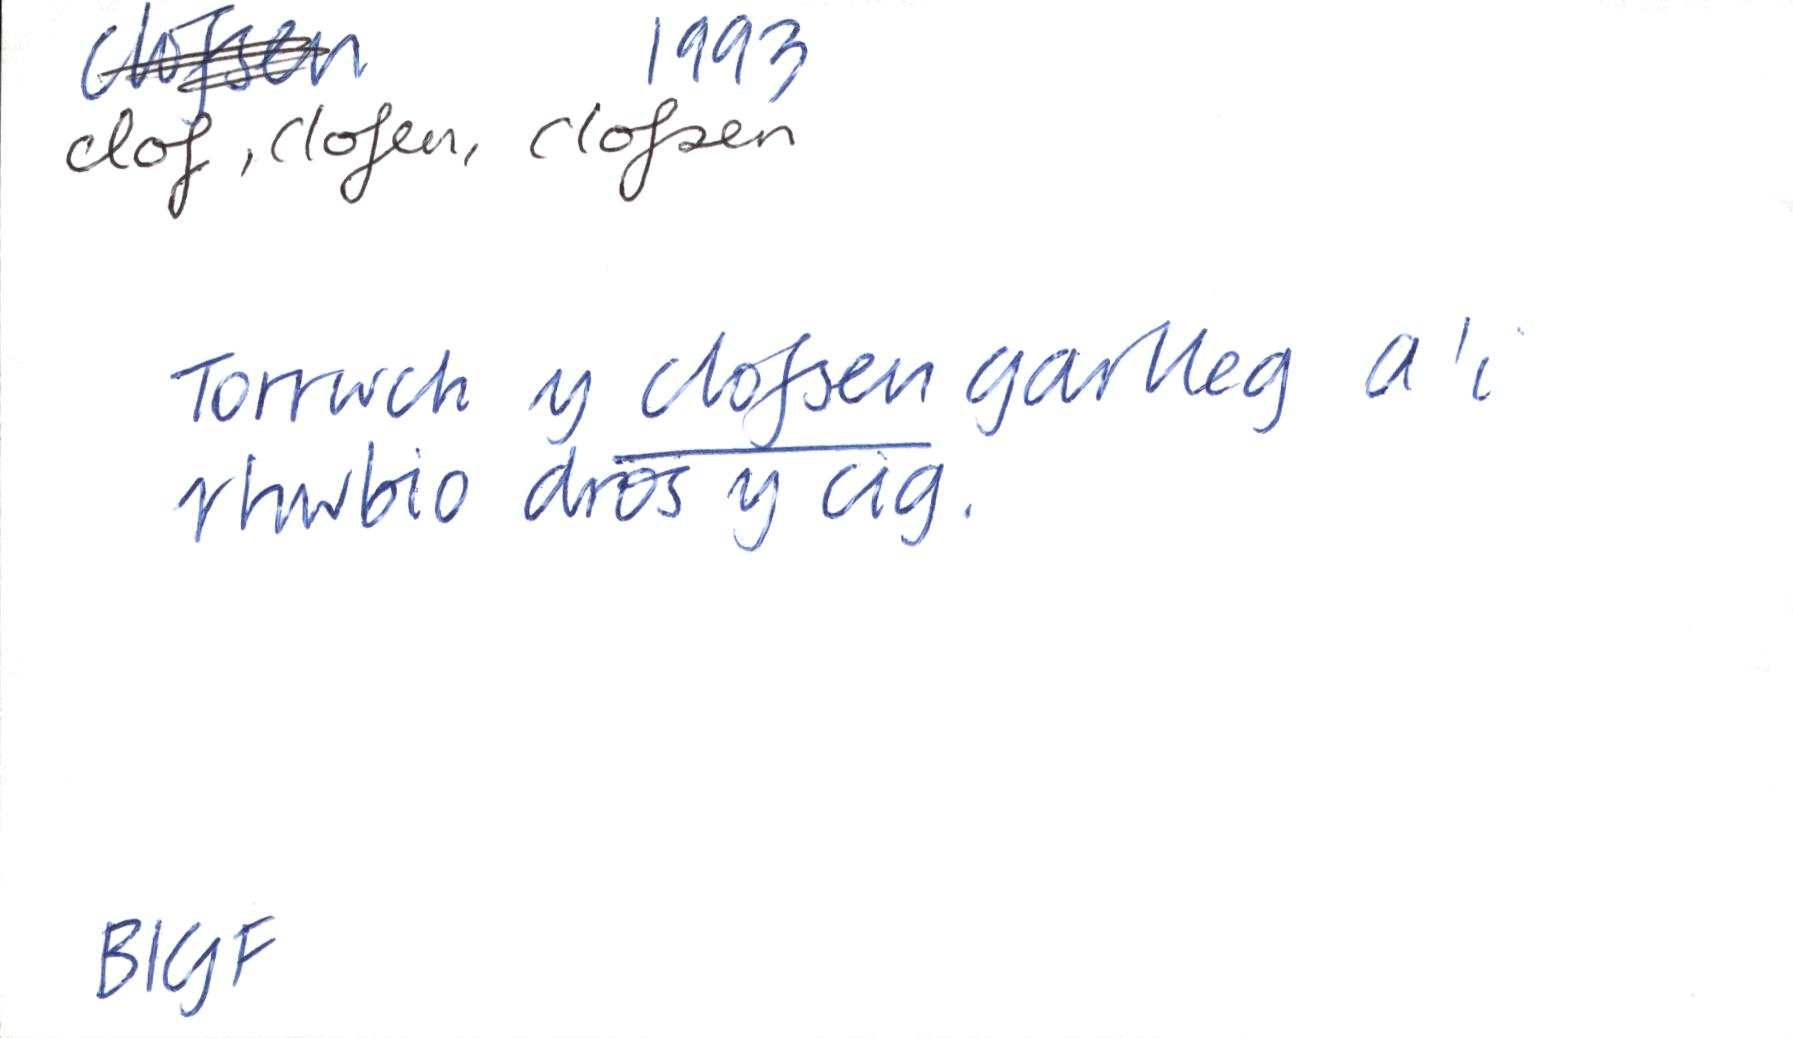 clofsen 1993
clof, clofen, clofsen
Torrwch y clofsen garlleg a'i
rhwbio dros y cig.
BIGF